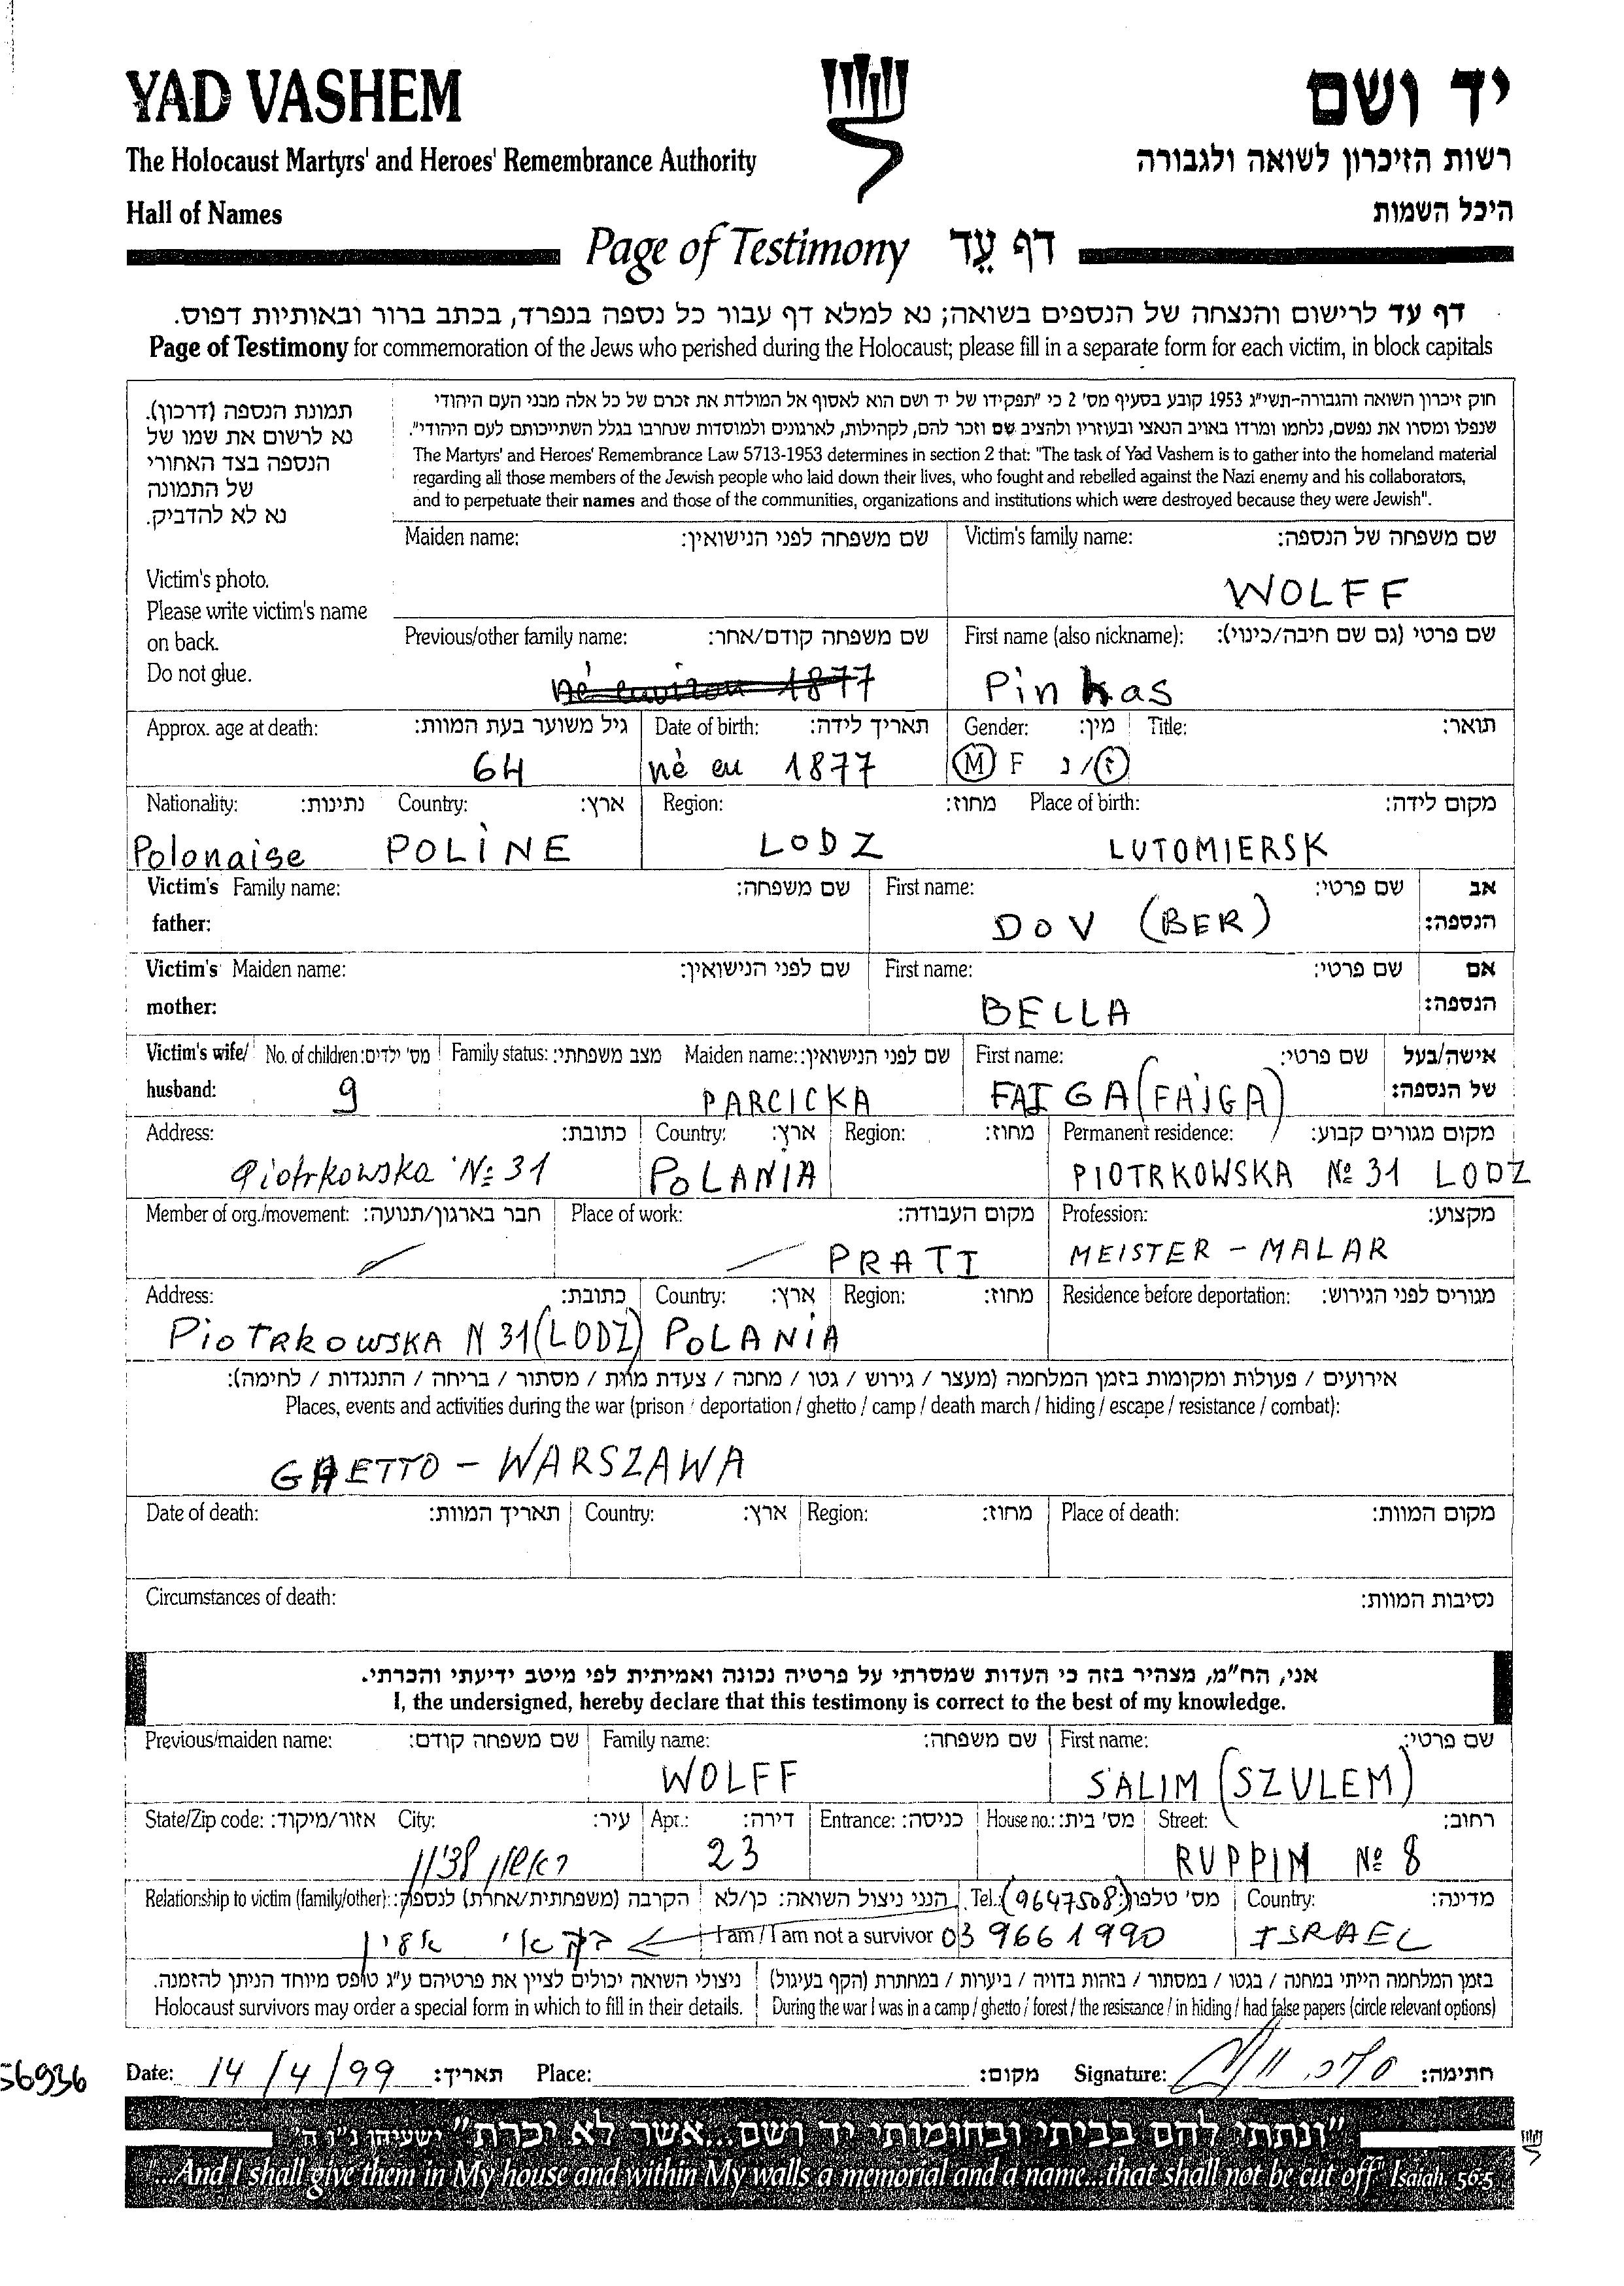 YAD VASHEM
יד ושם
The Holocaust Martyrs' and Heroes' Remembrance Authority
רשות הזיכרון לשואה ולגבורה
Hall of Names
היכל השמות
Page of Testimony דף עֵד
דף עד לרישום והנצחה של הנספים בשואה; נא למלא דף עבור כל נספה בנפרד, בכתב ברור ובאותיות דפוס.
Page of Testimony for commemoration of the Jews who perished during the Holocaust; please fill in a separate form for each victim, in block capitals
תמונת הנספה (דרכון).
נא לרשום את שמו של
הנספה בצד האחורי
של התמונה
נא לא להדביק.
Victim's photo.
Please write victim's name
on back.
Do not glue.
חוק זיכרון השואה והגבורה-תשי"ג 1953 קובע בסעיף מס' 2 כי "תפקידו של יד ושם הוא לאסוף אל המולדת את זכרם של כל אלה מבני העם היהודי
שנפלו ומסרו את נפשם, נלחמו ומרדו באויב הנאצי ובעוזריו ולהציב שם וזכר להם, לקהילות, לארגונים ולמוסדות שנחרבו בגלל השתייכותם לעם היהודי".
The Martyrs' and Heroes' Remembrance Law 5713-1953 determines in section 2 that: "The task of Yad Vashem is to gather into the homeland material
regarding all those members of the Jewish people who laid down their lives, who fought and rebelled against the Nazi enemy and his collaborators,
and to perpetuate their names and those of the communities, organizations and institutions which were destroyed because they were Jewish".
Maiden name: שם משפחה לפני הנישואין: Victim's family name: שם משפחה של הנספה:
WOLFF
Previous/other family name: שם משפחה קודם/אחר: First name (also nickname): שם פרטי (גם שם חיבה/כינוי):
né environ 1877 Pinkas
Approx. age at death: גיל משוער בעת המוות: Date of birth: תאריך לידה: Gender: מין: Title: תואר:
64 né en 1877 M F נ/ז
Nationality: נתינות: Country: ארץ: Region: מחוז: Place of birth: מקום לידה:
Polonaise POLINE LODZ LUTOMIERSK
Victim's Family name: שם משפחה: First name: שם פרטי: אב
father: DOV (BER) הנספה:
Victim's Maiden name: שם לפני הנישואין: First name: שם פרטי: אם
mother: BELLA הנספה:
Victim's wife/ No. of children: מס' ילדים: Family status: מצב משפחתי: Maiden name: שם לפני הנישואין: First name: שם פרטי: אישה/בעל
husband: 9 PARCICKA FAIGA (FAJGA) של הנספה:
Address: כתובת: Country: ארץ: Region: מחוז: Permanent residence: מקום מגורים קבוע:
Piotrkowska № 31 POLANIA PIOTRKOWSKA № 31 LODZ
Member of org./movement: חבר בארגון/תנועה: Place of work: מקום העבודה: Profession: מקצוע:
PRATI MEISTER - MALAR
Address: כתובת: Country: ארץ: Region: מחוז: Residence before deportation: מגורים לפני הגירוש:
PioTRKOWSKA N 31 (LODZ) POLANIA
אירועים / פעולות ומקומות בזמן המלחמה (מעצר / גירוש / גטו / מחנה / צעדת מוות / מסתור / בריחה / התנגדות / לחימה):
Places, events and activities during the war (prison / deportation / ghetto / camp / death march / hiding / escape / resistance / combat):
GHETTO - WARSZAWA
Date of death: תאריך המוות: Country: ארץ: Region: מחוז: Place of death: מקום המוות:
Circumstances of death: נסיבות המוות:
אני, הח"מ, מצהיר בזה כי העדות שמסרתי על פרטיה נכונה ואמיתית לפי מיטב ידיעתי והכרתי.
I, the undersigned, hereby declare that this testimony is correct to the best of my knowledge.
Previous/maiden name: שם משפחה קודם: Family name: שם משפחה: First name: שם פרטי:
WOLFF SALIM (SZULEM)
State/Zip code: אזור/מיקוד: City: עיר: Apt.: דירה: Entrance: כניסה: House no.: מס' בית: Street: רחוב:
ראשון לציון 23 RUPPIN № 8
Relationship to victim (family/other): הקרבה (משפחתית/אחרת) לנספה: הנני ניצול השואה: כן/לא Tel.: (9647508) מס' טלפון: Country: מדינה:
I am / I am not a survivor 03 9661990 ISRAEL
ניצולי השואה יכולים לציין את פרטיהם ע"ג טופס מיוחד הניתן להזמנה. בזמן המלחמה הייתי במחנה / בגטו / במסתור / בזהות בדויה / ביערות / במחתרת (הקף בעיגול)
Holocaust survivors may order a special form in which to fill in their details. During the war I was in a camp / ghetto / forest / the resistance / in hiding / had false papers (circle relevant options)
56936 Date: 14/4/99 תאריך: Place: מקום: Signature: חתימה:
"ונתתי להם בביתי ובחומותי יד ושם...אשר לא יכרת" ישעיהו נ"ו ה'
"...And I shall give them in My house and within My walls a memorial and a name...that shall not be cut off." Isaiah, 56:5